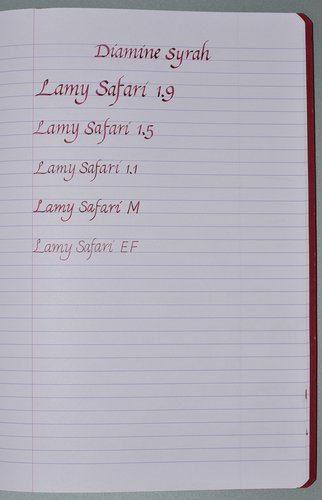 Diamine Syrah
Lamy Safari 1.9
Lamy Safari 1.5
Lamy Safari 1.1
Lamy Safari M
Lamy Safari EF